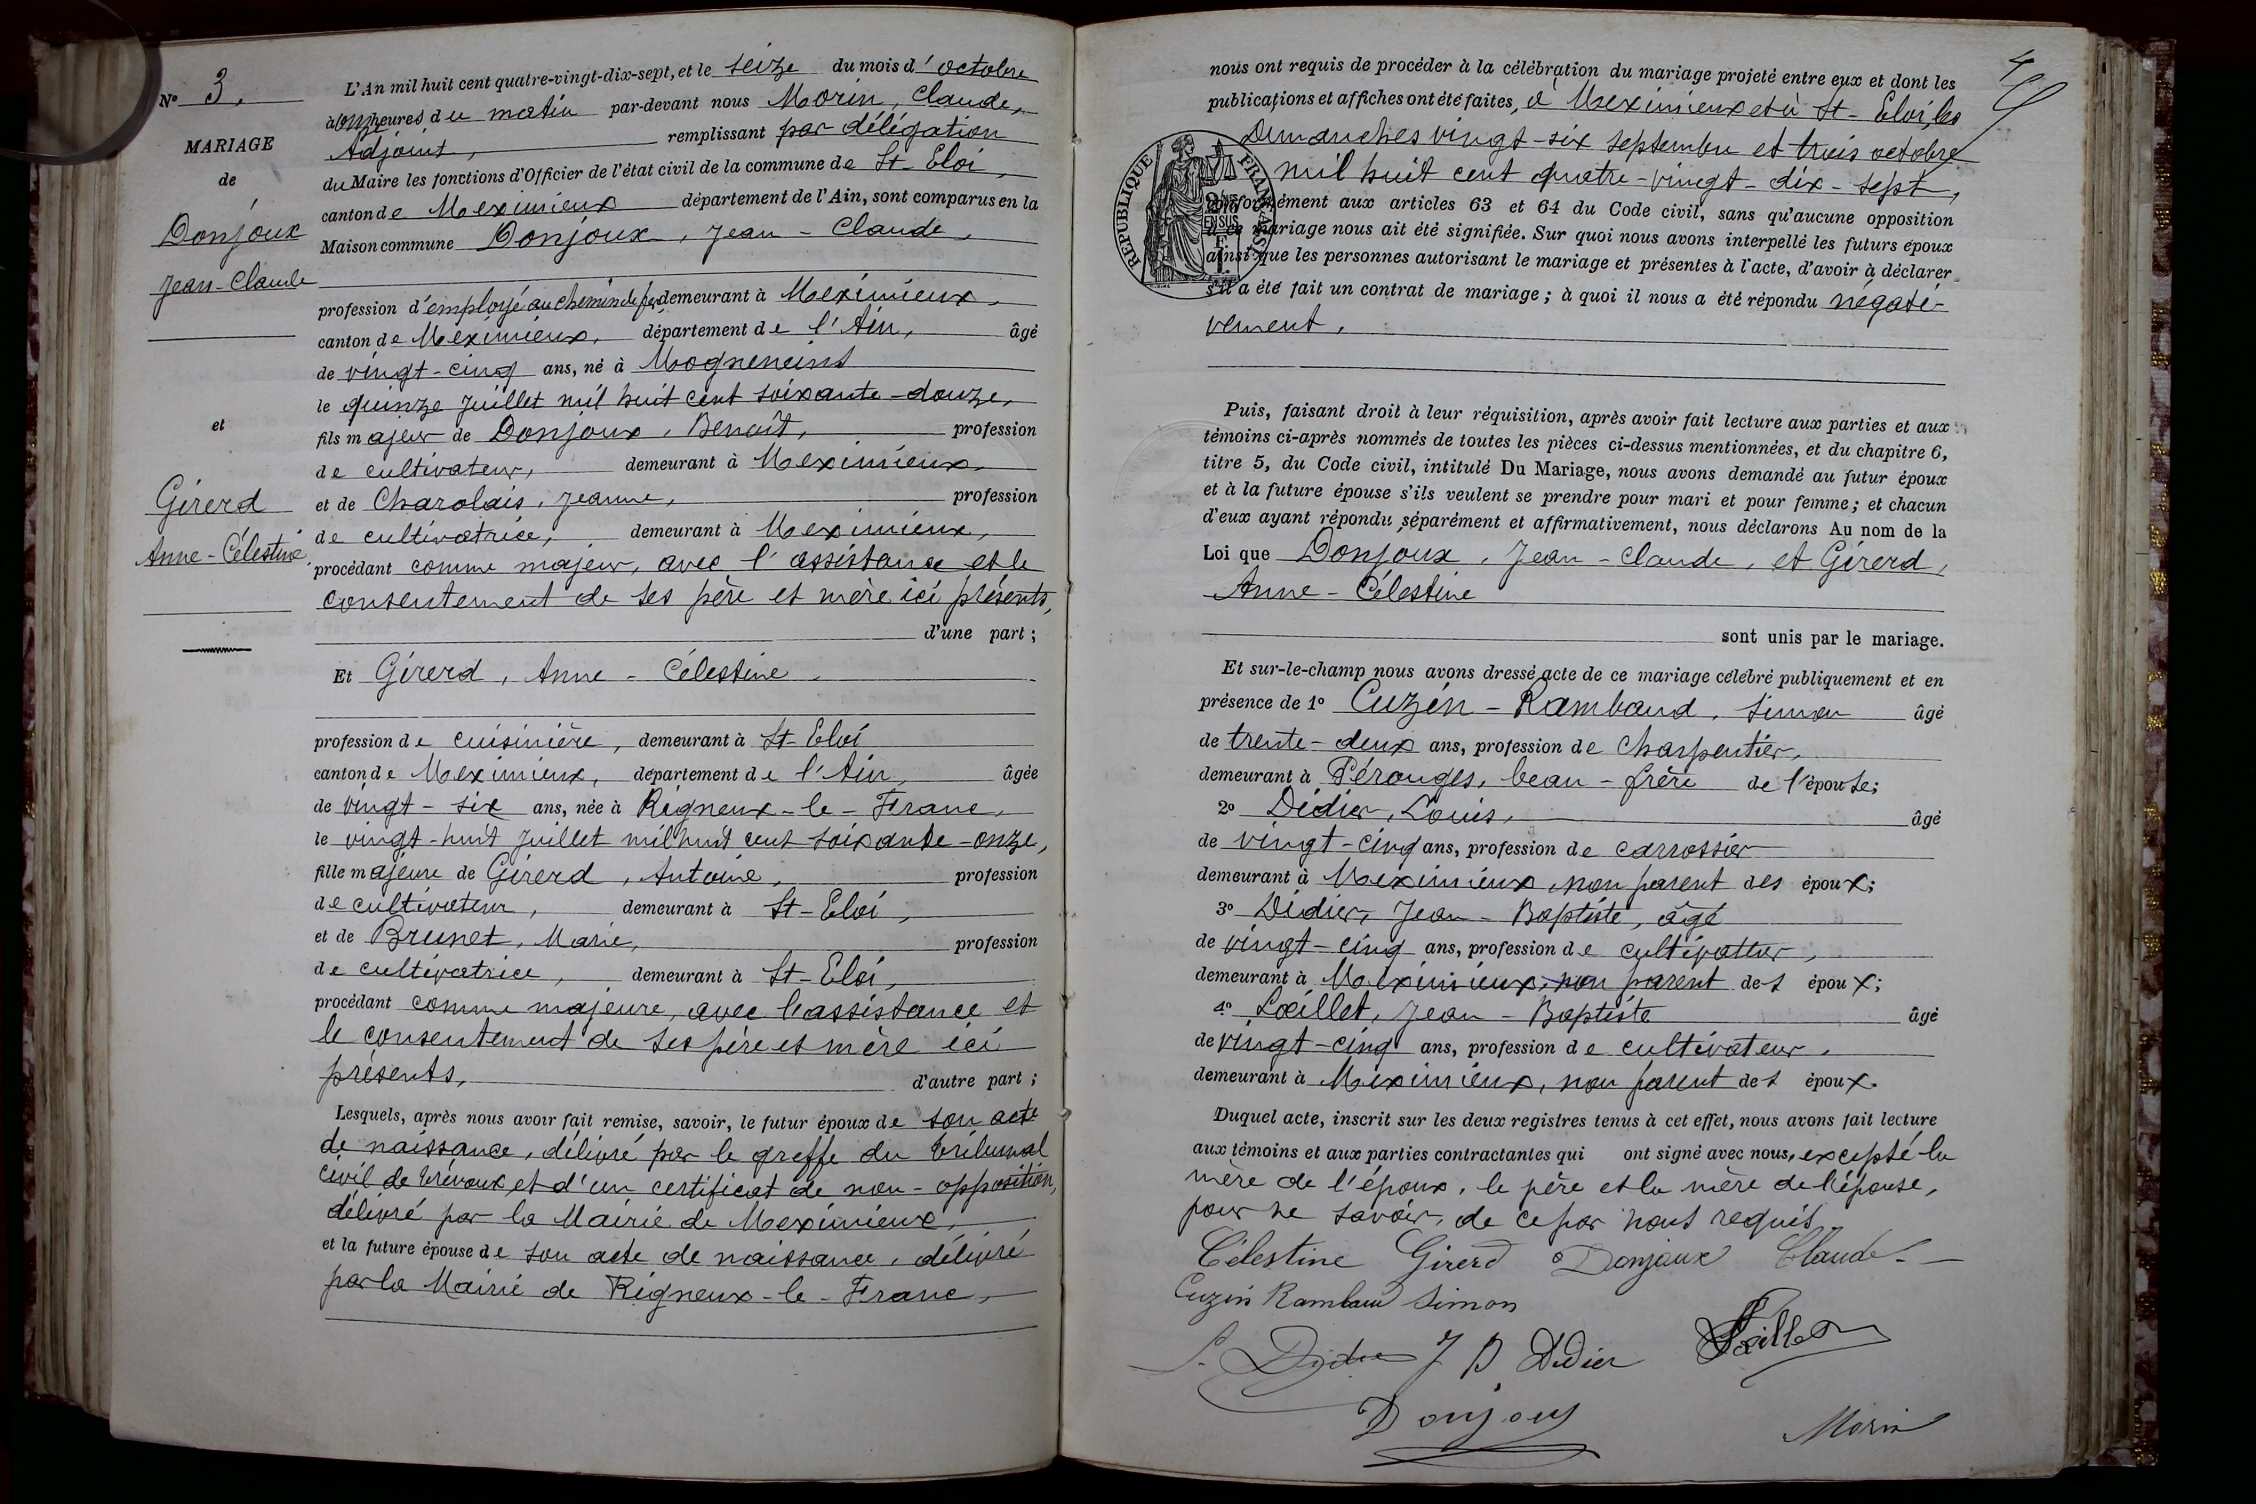 N° 3.
MARIAGE
de
Donjoux
Jean-Claude
et
Girerd
Anne-Célestine
L'An mil huit cent quatre-vingt-dix-sept, et le seize du mois d'octobre
à onze heures du matin par-devant nous Morin, Claude,
Adjoint, remplissant par délégation
du Maire les fonctions d'Officier de l'état civil de la commune de St-Eloi,
canton de Meximieux département de l'Ain, sont comparus en la
Maison commune Donjoux, Jean-Claude,
profession d'employé au chemin de fer demeurant à Meximieux,
canton de Meximieux, département de l'Ain, âgé
de vingt-cinq ans, né à Mogneneins
le quinze juillet mil huit cent soixante-douze,
fils majeur de Donjoux, Benoît, profession
de cultivateur, demeurant à Meximieux,
et de Charolais, Jeanne, profession
de cultivatrice, demeurant à Meximieux,
procédant comme majeur, avec l'assistance et le
consentement de ses père et mère ici présents,
d'une part;
Et Girerd, Anne-Célestine
profession de cuisinière, demeurant à St-Eloi
canton de Meximieux, département de l'Ain, âgée
de vingt-six ans, née à Rigneux-le-Franc,
le vingt-huit juillet mil huit cent soixante-onze,
fille majeure de Girerd, Antoine, profession
de cultivateur, demeurant à St-Eloi,
et de Brunet, Marie, profession
de cultivatrice, demeurant à St-Eloi,
procédant comme majeure, avec l'assistance et
le consentement de ses père et mère ici
présents, d'autre part;
Lesquels, après nous avoir fait remise, savoir, le futur époux de son acte
de naissance, délivré par le greffe du tribunal
civil de Trévoux, et d'un certificat de non-opposition,
délivré par la Mairie de Meximieux,
et la future épouse de son acte de naissance, délivré
par la Mairie de Rigneux-le-Franc,
nous ont requis de procéder à la célébration du mariage projeté entre eux et dont les
publications et affiches ont été faites, à Meximieux et à St-Eloi, les
Dimanches vingt-six septembre et trois octobre
mil huit cent quatre-vingt-dix-sept,
RÉPUBLIQUE FRANÇAISE
conformément aux articles 63 et 64 du Code civil, sans qu'aucune opposition
à ce mariage nous ait été signifiée. Sur quoi nous avons interpellé les futurs époux
ainsi que les personnes autorisant le mariage et présentes à l'acte, d'avoir à déclarer
s'il a été fait un contrat de mariage; à quoi il nous a été répondu négati-
vement.
Puis, faisant droit à leur réquisition, après avoir fait lecture aux parties et aux
témoins ci-après nommés de toutes les pièces ci-dessus mentionnées, et du chapitre 6,
titre 5, du Code civil, intitulé Du Mariage, nous avons demandé au futur époux
et à la future épouse s'ils veulent se prendre pour mari et pour femme; et chacun
d'eux ayant répondu séparément et affirmativement, nous déclarons Au nom de la
Loi que Donjoux, Jean-Claude, et Girerd,
Anne-Célestine
sont unis par le mariage.
Et sur-le-champ nous avons dressé acte de ce mariage célébré publiquement et en
présence de 1° Cuzin-Rambaud, Simon âgé
de trente-deux ans, profession de charpentier,
demeurant à Pérouges, beau-frère de l'épouse;
2° Didier, Louis, âgé
de vingt-cinq ans, profession de carrossier
demeurant à Meximieux, non parent des époux;
3° Didier, Jean-Baptiste, âgé
de vingt-cinq ans, profession de cultivateur,
demeurant à Meximieux, non parent des époux;
4° Lœillet, Jean-Baptiste âgé
de vingt-cinq ans, profession de cultivateur,
demeurant à Meximieux, non parent des époux.
Duquel acte, inscrit sur les deux registres tenus à cet effet, nous avons fait lecture
aux témoins et aux parties contractantes qui ont signé avec nous, excepté la
mère de l'époux, le père et la mère de l'épouse,
pour ne savoir, de ce par nous requis.
Célestine Girerd Donjoux Claude
Cuzin Rambaud Simon
L. Didier J B Didier Lœillet
Donjoux
Morin